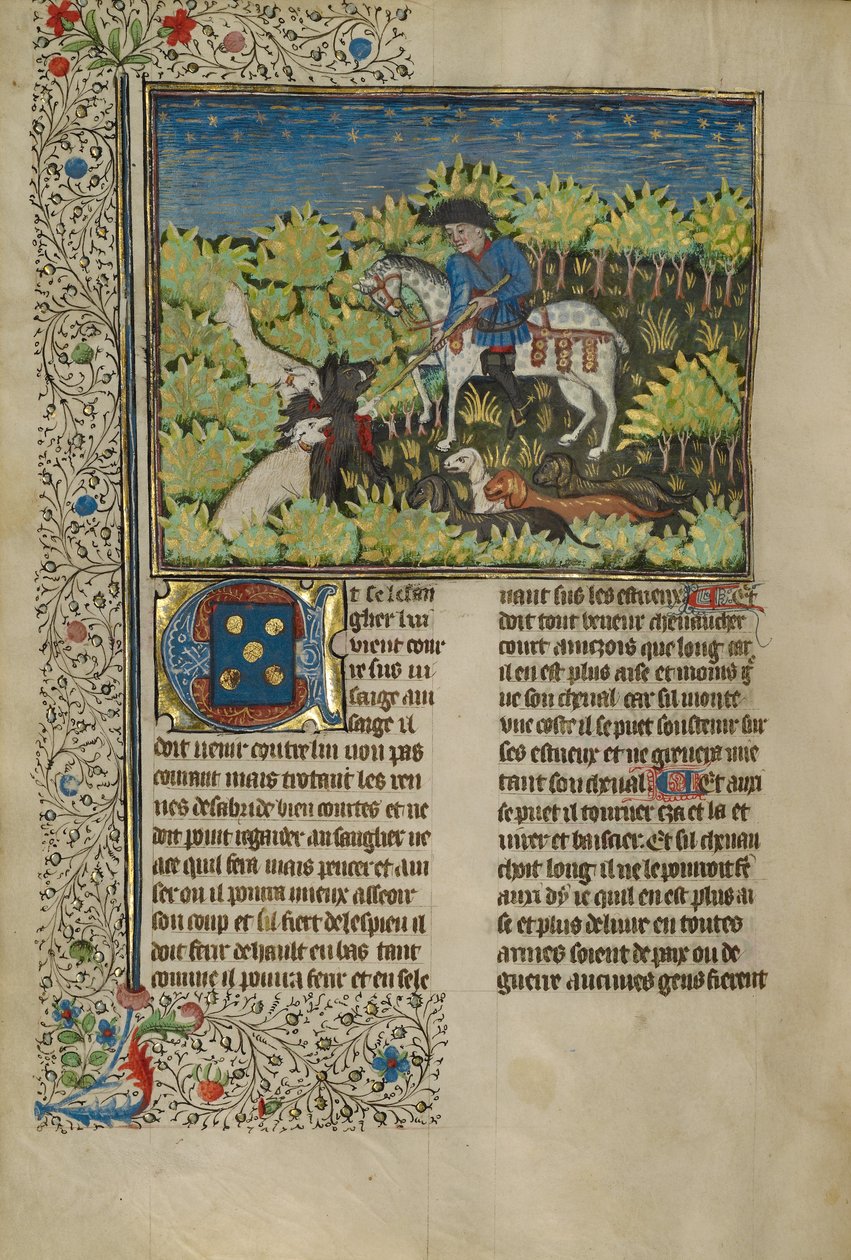 Et se le san
gher lui
vient cour
re sus vi
saige aui
saige il
doit venir contre lui non pas
courant mais trotant les ren
nes de sa bride bien courtes et ne
doit point regarder au sangher ne
a ce quil fera mais penser et aui
ser ou il pourra mieux asseoir
son coup et sil fiert de lespieu il
doit ferir de hault en bas tant
comme il pourra ferir et en sele
uant sus les estrieux
doit tout veneur cheuaucher
court ainczois que long car
il en est plus aise et moins g̃
ue son cheual car sil monte
vne coste il se puet soustenir sur
ses estrieux et ne greuera mie
tant son cheual Et auxi
se puet il tourner cza et la et
virer et baissier. Et sil cheuau
choit long il ne le pourroit fẽ
auxi dy ie quil en est plus ai
se et plus deliure en toutes
armes soient de paix ou de
guerre aucunes gens fierent